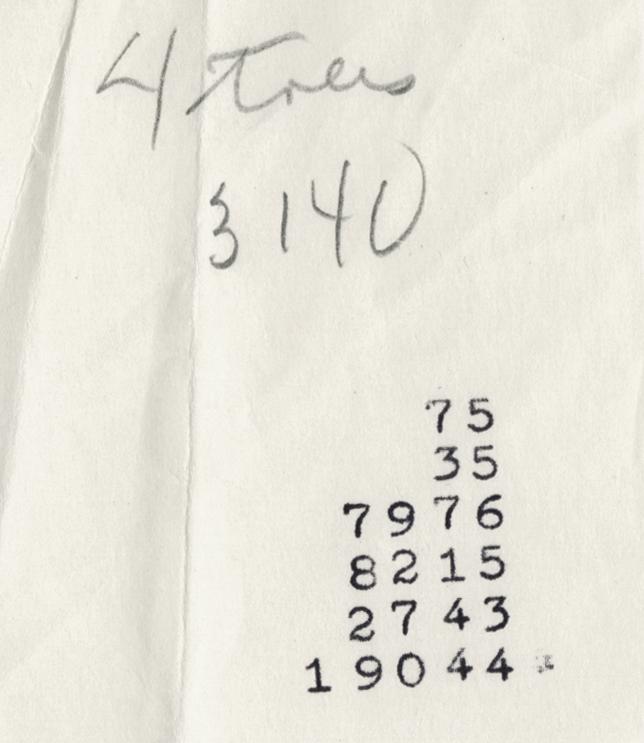 4 trees
3140
75
35
79 76
82 15
27 43
1 90 44 *